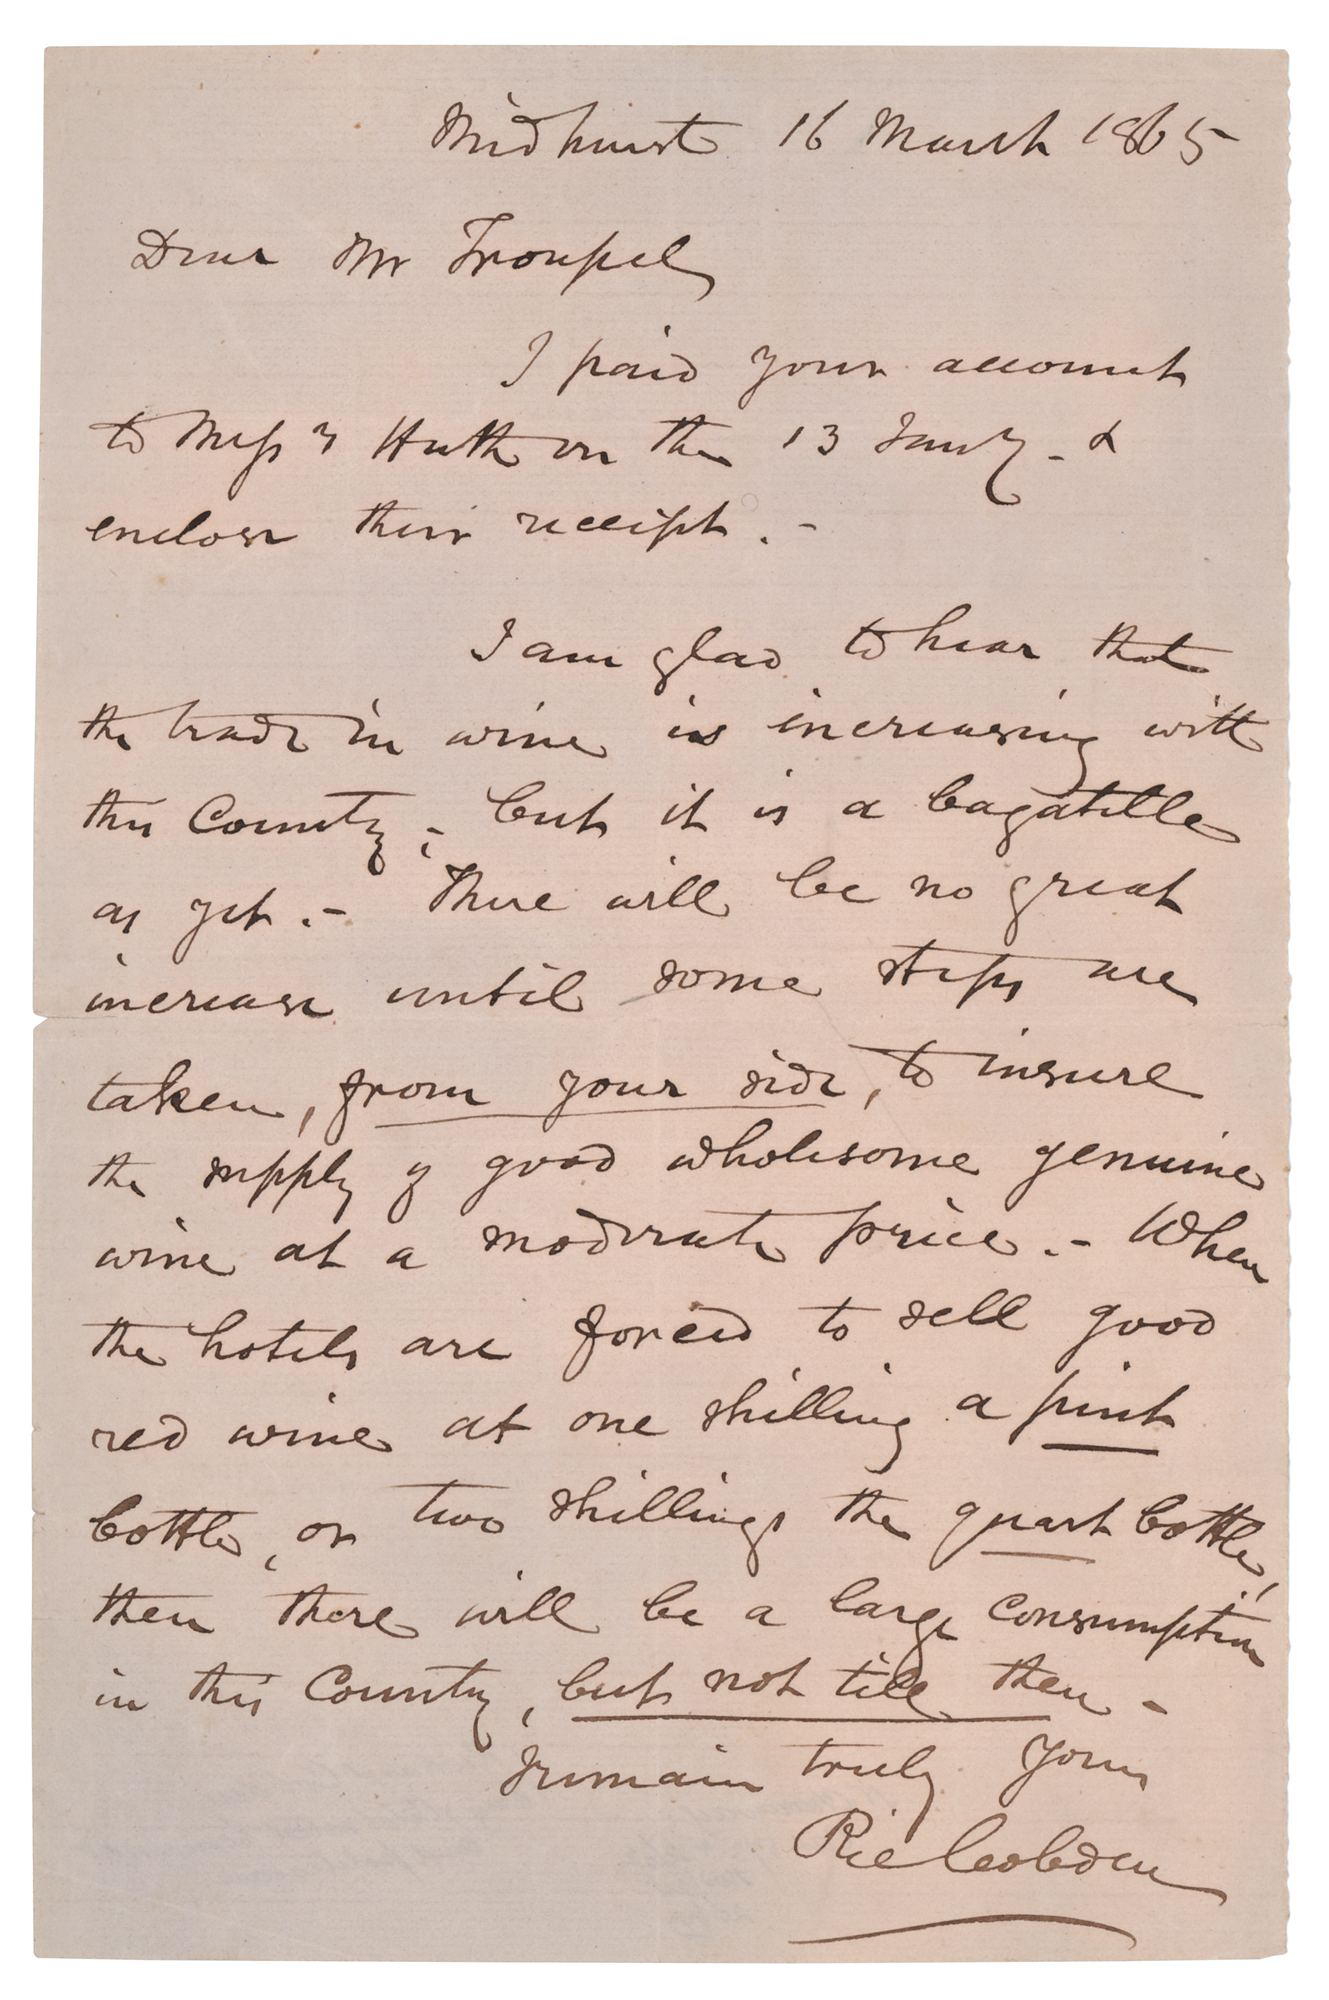 Midhurst 16 March 1865
Dear Mr Troupel
I paid your account
to Messrs Huth on the 13 Jany. - &
enclose their receipt. -
I am glad to hear that
the trade in wine is increasing with
this Country; but it is a bagatelle
as yet. - There will be no great
increase until some steps are
taken, from your side, to insure
the supply of good wholesome genuine
wine at a moderate price. - When
the hotels are forced to sell good
red wine at one shilling a pint
bottle, or two shillings the quart bottle,
then there will be a large consumption
in this Country, but not till then -
I remain truly Yours
Ric Cobden